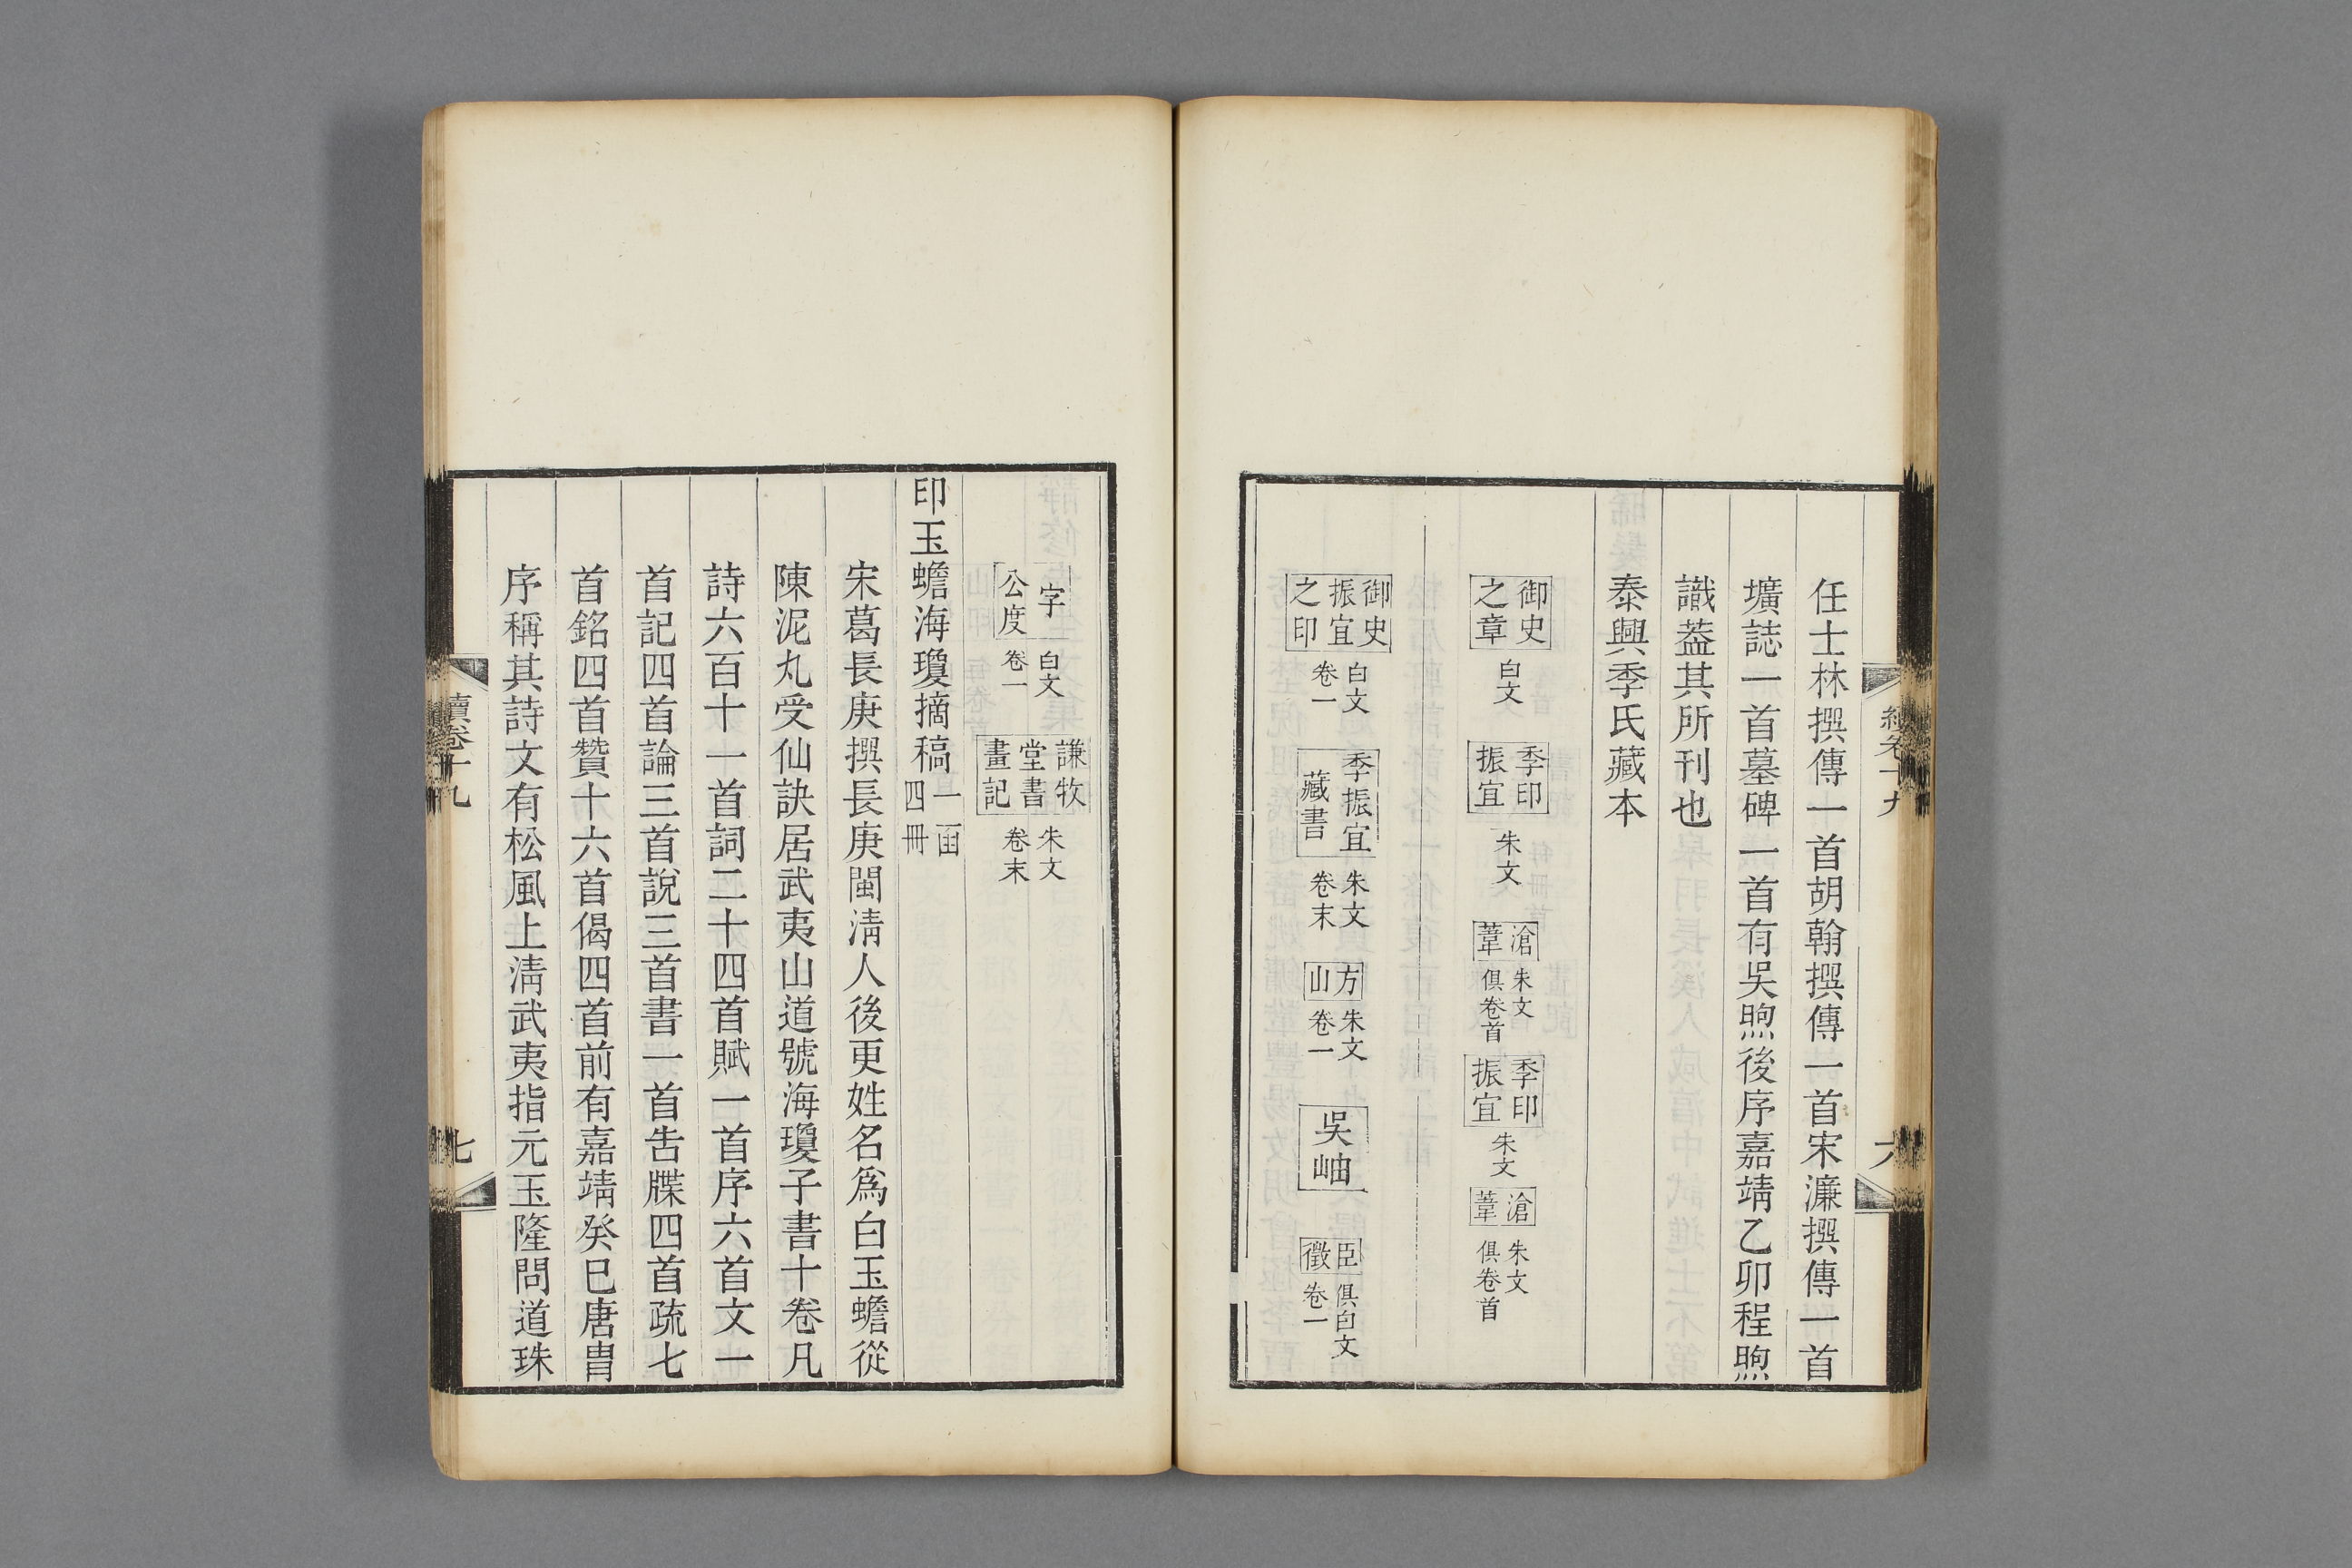 任士林撰傳一首胡翰撰傳一首宋濂撰傳一首
壙誌一首墓碑一首有吳煦後序嘉靖乙卯程煦
識葢其所刊也
泰興季氏藏本
御史之章 白文
季印振宜 朱文
滄葦 朱文 俱卷首
季印振宜 朱文
滄葦 朱文 俱卷首
御史振宜之印 白文 卷一
季振宜藏書 朱文 卷末
方山 朱文 卷一
吳岫
臣徵 俱白文 卷一
續卷十九
六
字公度 白文 卷一
謙牧堂書畫記 朱文 卷末
印玉蟾海瓊摘稿 一函四冊
宋葛長庚撰長庚閩淸人後更姓名爲白玉蟾從
陳泥丸受仙訣居武夷山道號海瓊子書十卷凡
詩六百十一首詞二十四首賦一首序六首文一
首記四首論三首說三首書一首吿牒四首疏七
首銘四首贊十六首偈四首前有嘉靖癸巳唐胄
序稱其詩文有松風上淸武夷指元玉隆問道珠
續卷十九
七